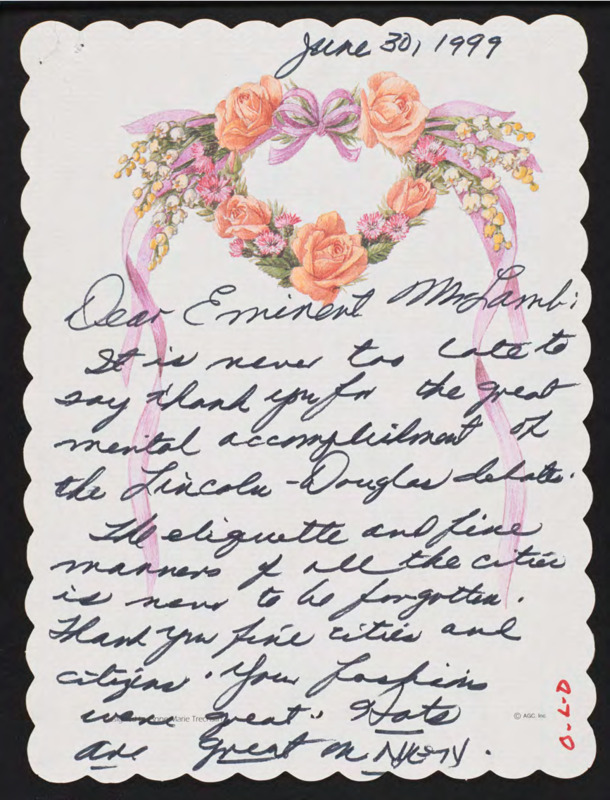 June 30, 1999
Dear Eminent Mr Lamb:
It is never too late to
say thank you for the great
mental accomplishment of
the Lincoln-Douglas debate.
The etiquette and fine
manners of all the cities
is never to be forgotten.
Thank you fine cities and
citizens. Your fashions
were great. Hats
are great on
Marie
© AGC, Inc.
O-L-D